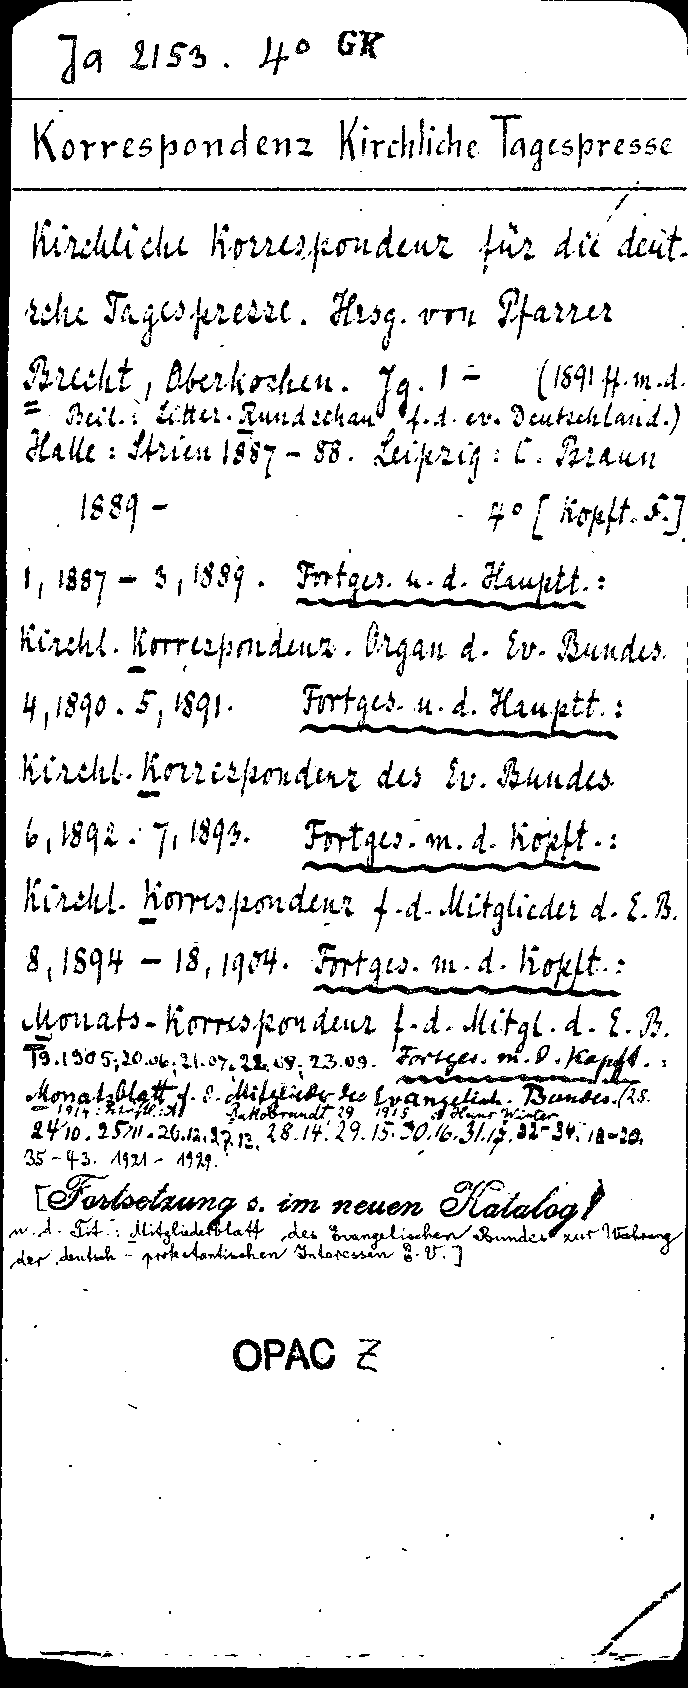 Ja 2153. 4° GK
Korrespondenz Kirchliche Tagespresse
Kirchliche Korrespondenz für die deut-
sche Tagespresse. Hrsg. von Pfarrer
Brecht, Oberkochen. Jg. 1 - (1891 ff. m. d.
Beil.: Litter. Rundschau f. d. ev. Deutschland.)
Halle: Strien 1887 - 88. Leipzig: C. Braun
1889 - 4° [Kopft. F.]
1, 1887 - 3, 1889. Fortges. u. d. Hauptt.:
Kirchl. Korrespondenz. Organ d. Ev. Bundes.
4, 1890. 5, 1891. Fortges. u. d. Hauptt.:
Kirchl. Korrespondenz des Ev. Bundes
6, 1892. 7, 1893. Fortges. m. d. Kopft.:
Kirchl. Korrespondenz f. d. Mitglieder d. E. B.
8, 1894 - 18, 1904. Fortges. m. d. Kopft.:
Monats-Korrespondenz f. d. Mitgl. d. E. B.
19. 1905; 20. 06; 21. 07; 22. 08; 23. 09. Fortges. m. d. Kopft.:
Monatsblatt f. d. Mitglieder des Evangelisch. Bundes. (28.
1914: 29 1915 Hans Winter
24 10. 25 11. 26. 12. 27. 13. 28. 14. 29. 15. 30. 16. 31. 17. 32 - 34. 18 - 20.
35 - 43. 1921 - 1929.
[Fortsetzung s. im neuen Katalog!
u. d. Tit.: Mitgliederblatt des Evangelischen Bundes zur Wahrung
der deutsch - protestantischen Interessen E. V.]
OPAC Z